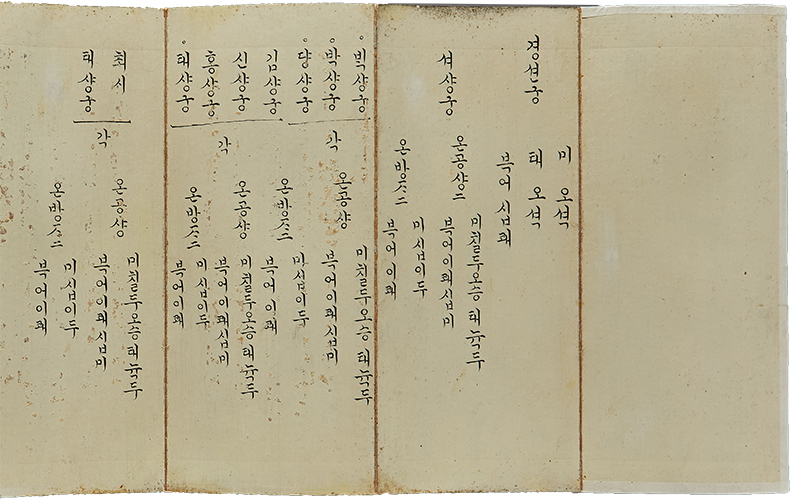 경션궁
미 오셕
태 오셕
북어 십쾌
셔샹궁
온공샹二
미칠두오승 태뉵두
북어이쾌십미
온방ᄌᆞ二
미십이두
북어이쾌
박샹궁
박샹궁
당샹궁
각
온공샹
미칠두오승 태뉵두
북어이쾌십미
온방ᄌᆞ二
미십이두
북어이쾌
김샹궁
신샹궁
흥샹궁
태샹궁
각
온공샹
미칠두오승 태뉵두
북어이쾌십미
온방ᄌᆞ二
미십이두
북어이쾌
최시
태샹궁
각
온공샹
미칠두오승 태뉵두
북어이쾌십미
온방ᄌᆞ二
미십이두
북어이쾌